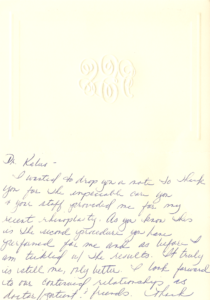 Dr. Kolus -
I wanted to drop you a note to thank
you for the impeccable care you
& your staff provided me for my
recent rhinoplasty. As you know this
is the second procedure you have
performed for me and as before I
am tickled w/ the results. It truly
is still me, only better. I look forward
to our continued relationships as
doctor/patient & friends. Thank